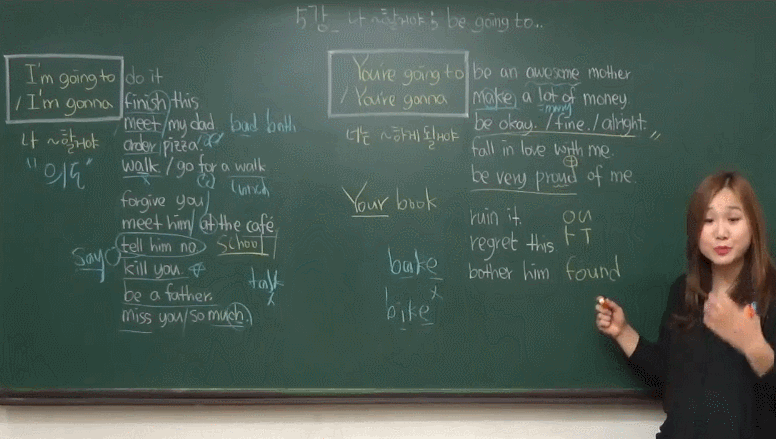 5강_ 나 ~할거야 be going to..
I'm going to
/ I'm gonna
나 ~할거야
"의도"
do it
finish this
meet / my dad bad bath
order pizza
walk / go for a walk
forgive you
meet him / at the café
tell him no. school
say
kill you.
be a father. talk
miss you / so much.
You're going to
/ You're gonna
너는 ~하게 될거야
Your book
bake
bike
be an awesome mother
make a lot of money
many
be okay. / fine. / alright.
fall in love with me.
be very proud of me.
ruin it. ou
regret this.
bother him found